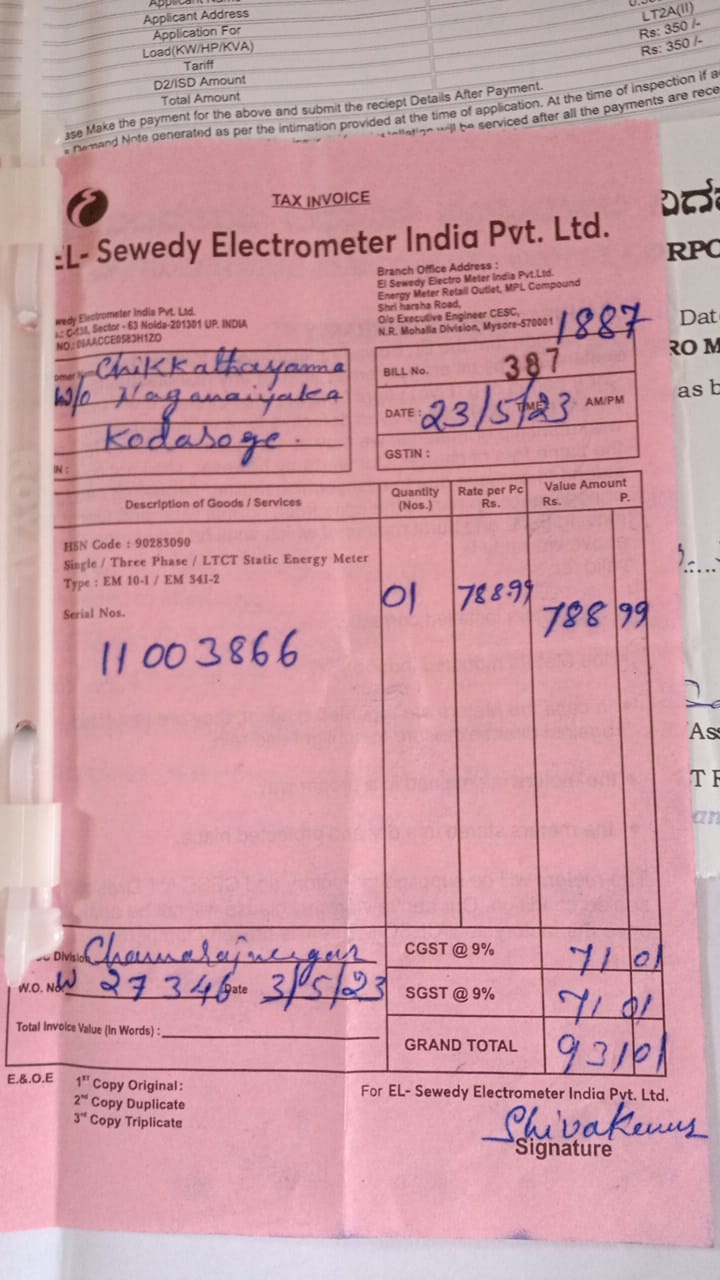 Applicant Address
Application For
Load(KW/HP/KVA)
Tariff
LT2A(II)
D2/ISD Amount
Rs: 350 /-
Total Amount
Rs: 350 /-
ase Make the payment for the above and submit the reciept Details After Payment.
Demand Note generated as per the intimation provided at the time of application. At the time of inspection if a
will be serviced after all the payments are rece
TAX INVOICE
EL- Sewedy Electrometer India Pvt. Ltd.
wedy Electrometer India Pvt. Ltd.
Sector - 63 Noida-201301 UP. INDIA
Branch Office Address :
El Sewedy Electro Meter India Pvt.Ltd.
Energy Meter Retail Outlet, MPL Compound
Shri harsha Road,
O/o Executive Engineer CESC,
N.R. Mohalla Division, Mysore-570001
1887
Chikkathayama
W/o Naganaiyaka
Kodasoge.
IN :
BILL No. 387
DATE : 23/5/23 TIME: AM/PM
GSTIN :
Description of Goods / Services
Quantity (Nos.)
Rate per Pc Rs.
Value Amount Rs. P.
HSN Code : 90283090
Single / Three Phase / LTCT Static Energy Meter
Type : EM 10-1 / EM 341-2
Serial Nos.
11003866
01 788.99 788 99
Division Chamarajnagar
W.O. No. W 27346 Date 3/5/23
Total Invoice Value (In Words) :
CGST @ 9% 71 01
SGST @ 9% 71 01
GRAND TOTAL 931 01
E.&.O.E
1st Copy Original:
2nd Copy Duplicate
3rd Copy Triplicate
For EL- Sewedy Electrometer India Pvt. Ltd.
Shivakumar
Signature
RPO
Dat
RO M
as b
Ass
T F